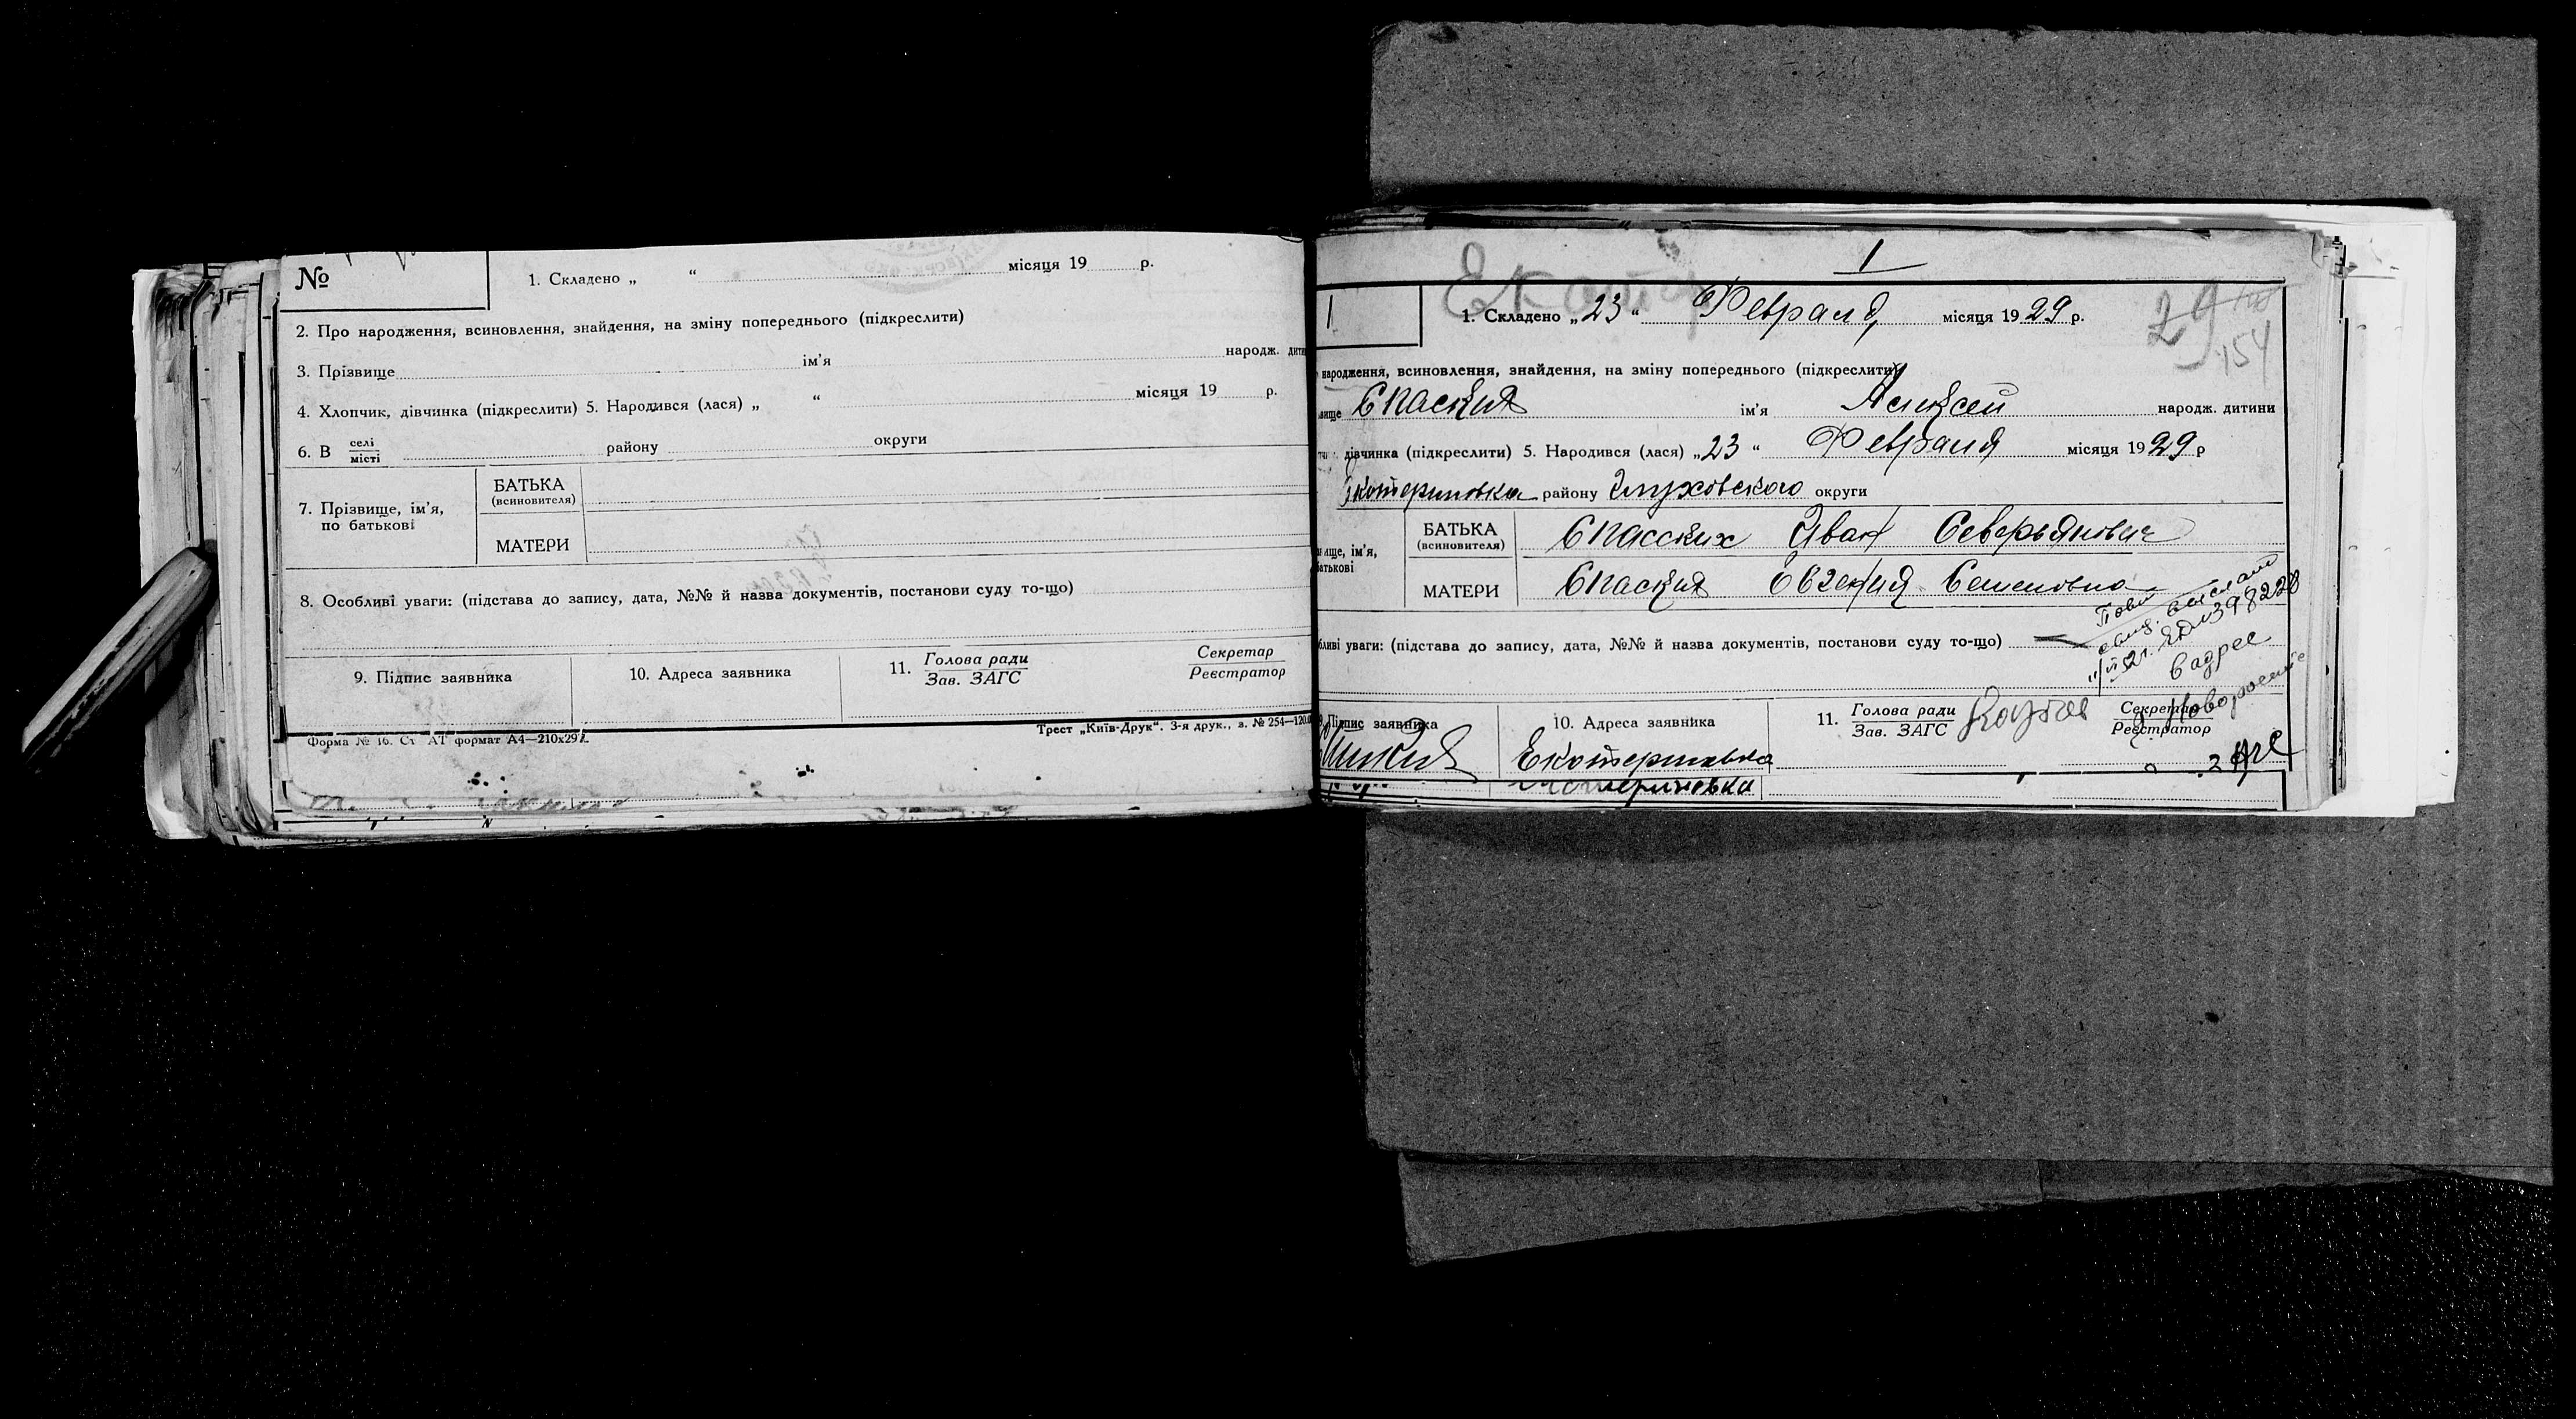 №
1. Складено „ “ місяця 19 р.
2. Про народження, всиновлення, знайдення, на зміну попереднього (підкреслити)
3. Прізвище ім'я народж. дити
4. Хлопчик, дівчинка (підкреслити) 5. Народився (лася) „ “ місяця 19 р.
6. В селі місті району округи
7. Прізвище, ім'я, по батькові
БАТЬКА (всиновителя)
МАТЕРИ
8. Особливі уваги: (підстава до запису, дата, №№ й назва документів, постанови суду то-що)
9. Підпис заявника
10. Адреса заявника
11. Голова ради Зав. ЗАГС
Секретар Реєстратор
Форма № 16. Ст АТ формат А4—210х297.
Трест „Київ-Друк“. 3-я друк., з. № 254—120.0
1
1
1. Складено „23“ Февраля місяця 1929 р.
29
154
народження, всиновлення, знайдення, на зміну попереднього (підкреслити)
вище Спаския ім'я Алексей народж. дитини
дівчинка (підкреслити) 5. Народився (лася) „23“ Февраля місяця 1929 р
Екотериновка району Глуховского округи
вище, ім'я, батькові
БАТЬКА (всиновителя) Спасских Иван Северьянович
МАТЕРИ Спаския Овгения Семеновна
бливі уваги: (підстава до запису, дата, №№ й назва документів, постанови суду то-що)
Повт.
свид. выслано
398228
в адрес
9. Підпис заявника
10. Адреса заявника
11. Голова ради Зав. ЗАГС
Секретар Реєстратор
Екотериновка
териновка